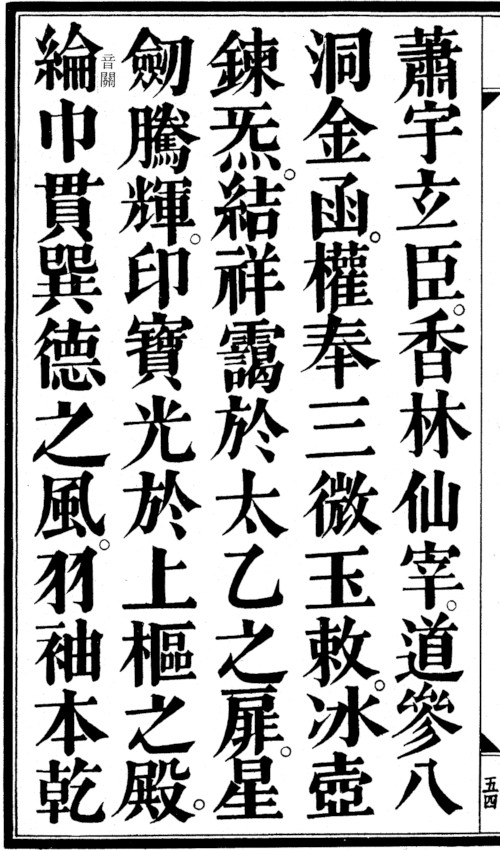 蕭宇立臣。香林仙宰。道參八
洞金函。權奉三微玉敕。冰壺
鍊炁。結祥靄於太乙之扉。星
劒騰輝。印寶光於上樞之殿。
綸音關巾貫巽德之風。羽袖本乾
五四